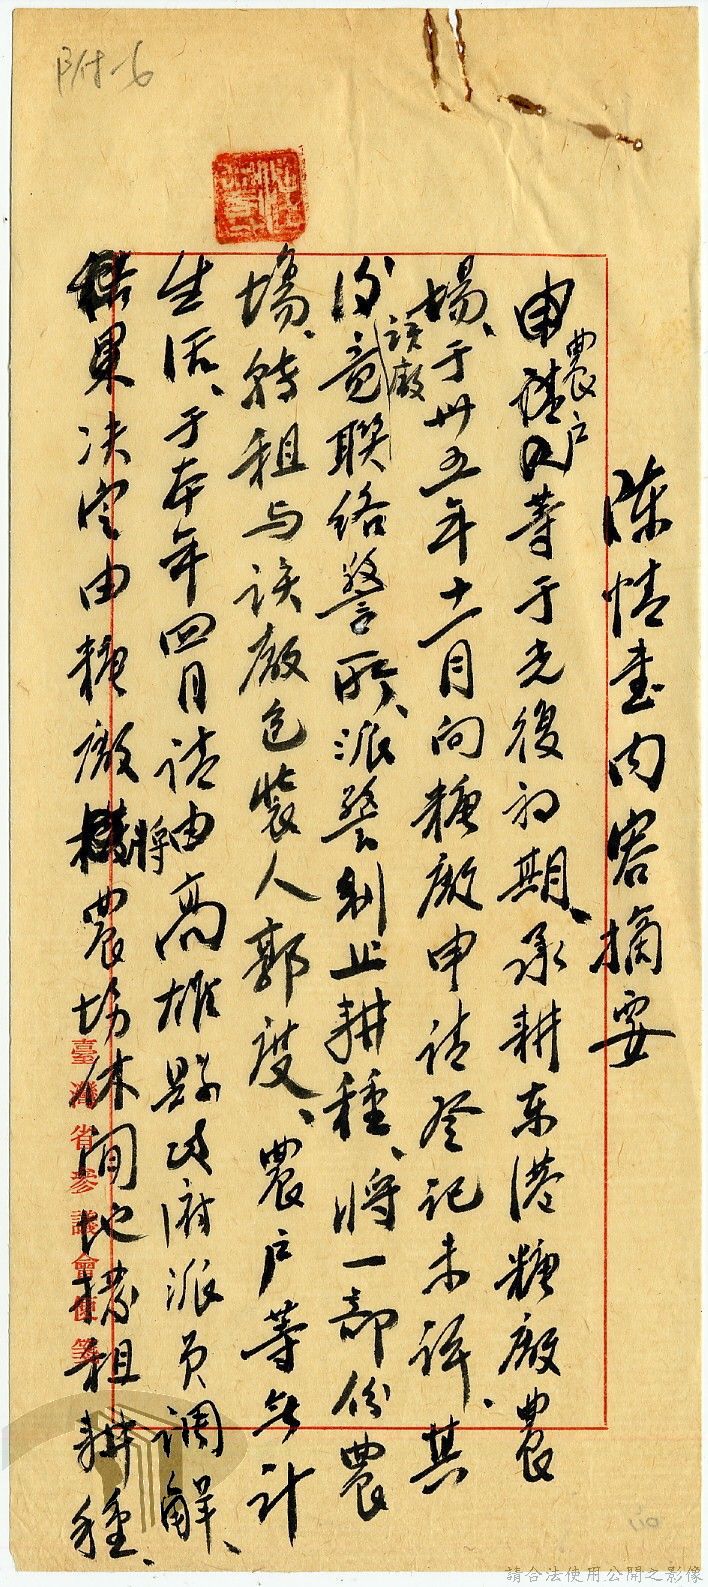 附七
陳情書内容摘要
申請人農戶等于光復初期、承耕東港糖廠農
場、于卅五年十一月向糖廠申請登記未許、其
後竟該廠聯絡警所、派警制止耕種、將一部份農
場、轉租与該廠包裝人郭度、農戶等無计
生活、于本年四月請由高雄縣政府派員调解、
結果决定由糖廠將農場休閒地撥租耕種、
臺灣省參議會便箋
請合法使用公開之影像